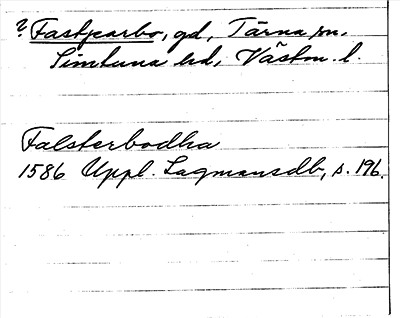 ? Fastjearbo, gd, Tärna sn,
Simtuna hd, Västm. l.
Falsterbodha
1586 Uppl. Lagmansdb, s. 196.